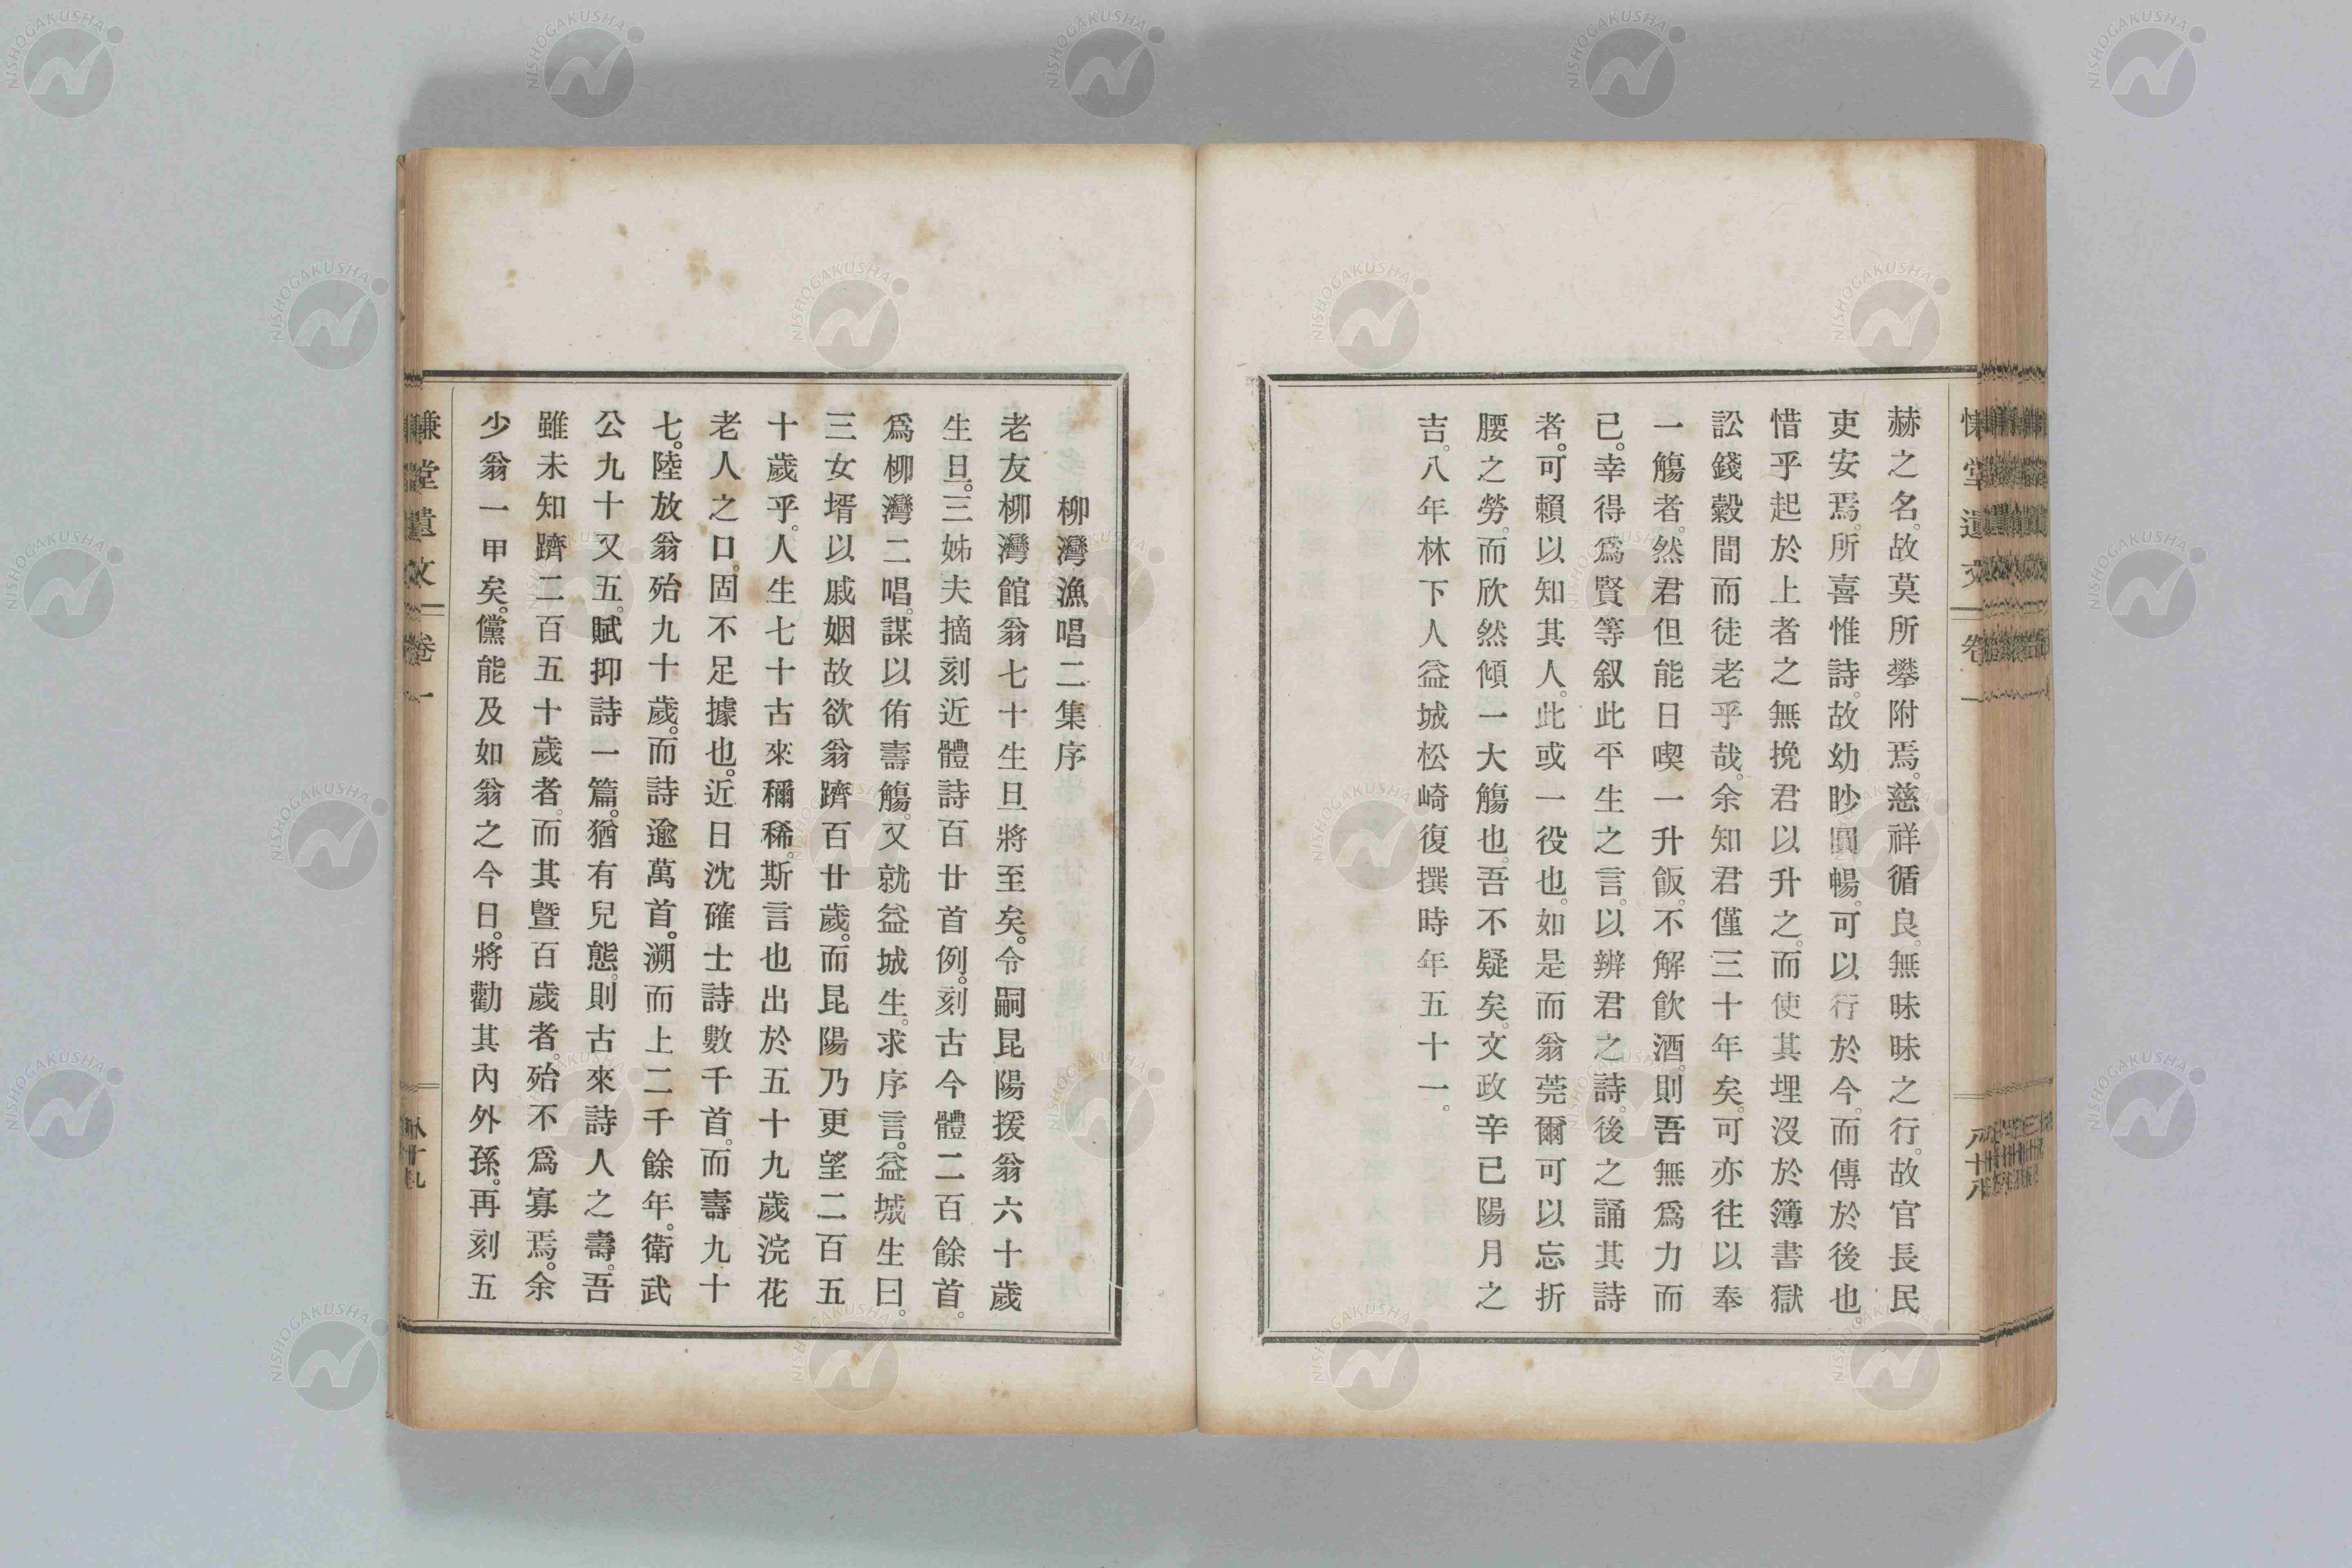 赫之名。故莫所攀附焉。慈祥循良。無昧昧之行。故官長民
吏安焉。所喜惟詩。故幼眇圓暢。可以行於今。而傳於後也。
惜乎起於上者之無挽君以升之。而使其埋沒於簿書獄
訟錢穀間而徒老乎哉。余知君僅三十年矣。可亦往以奉
一觴者。然君但能日喫一升飯。不解飮酒。則吾無爲力而
已。幸得爲賢等叙此平生之言。以辨君之詩。後之誦其詩
者。可賴以知其人。此或一役也。如是而翁莞爾可以忘折
腰之勞。而欣然傾一大觴也。吾不疑矣。文政辛巳陽月之
吉。八年林下人益城松崎復撰時年五十一。
柳灣漁唱二集序
老友柳灣館翁七十生旦將至矣。令嗣昆陽援翁六十歲
生旦。三姊夫摘刻近體詩百廿首例。刻古今體二百餘首。
爲柳灣二唱。謀以侑壽觴。又就益城生。求序言。益城生曰。
三女壻以戚姻故欲翁躋百廿歲。而昆陽乃更望二百五
十歲乎。人生七十古來稱稀。斯言也出於五十九歲浣花
老人之口。固不足據也。近日沈確士詩數千首。而壽九十
七。陸放翁殆九十歲。而詩逾萬首。溯而上二千餘年。衛武
公九十又五。賦抑詩一篇。猶有兒態。則古來詩人之壽。吾
雖未知躋二百五十歲者。而其曁百歲者。殆不爲寡焉。余
少翁一甲矣。儻能及如翁之今日。將勸其內外孫。再刻五
NISHOGAKUSHA